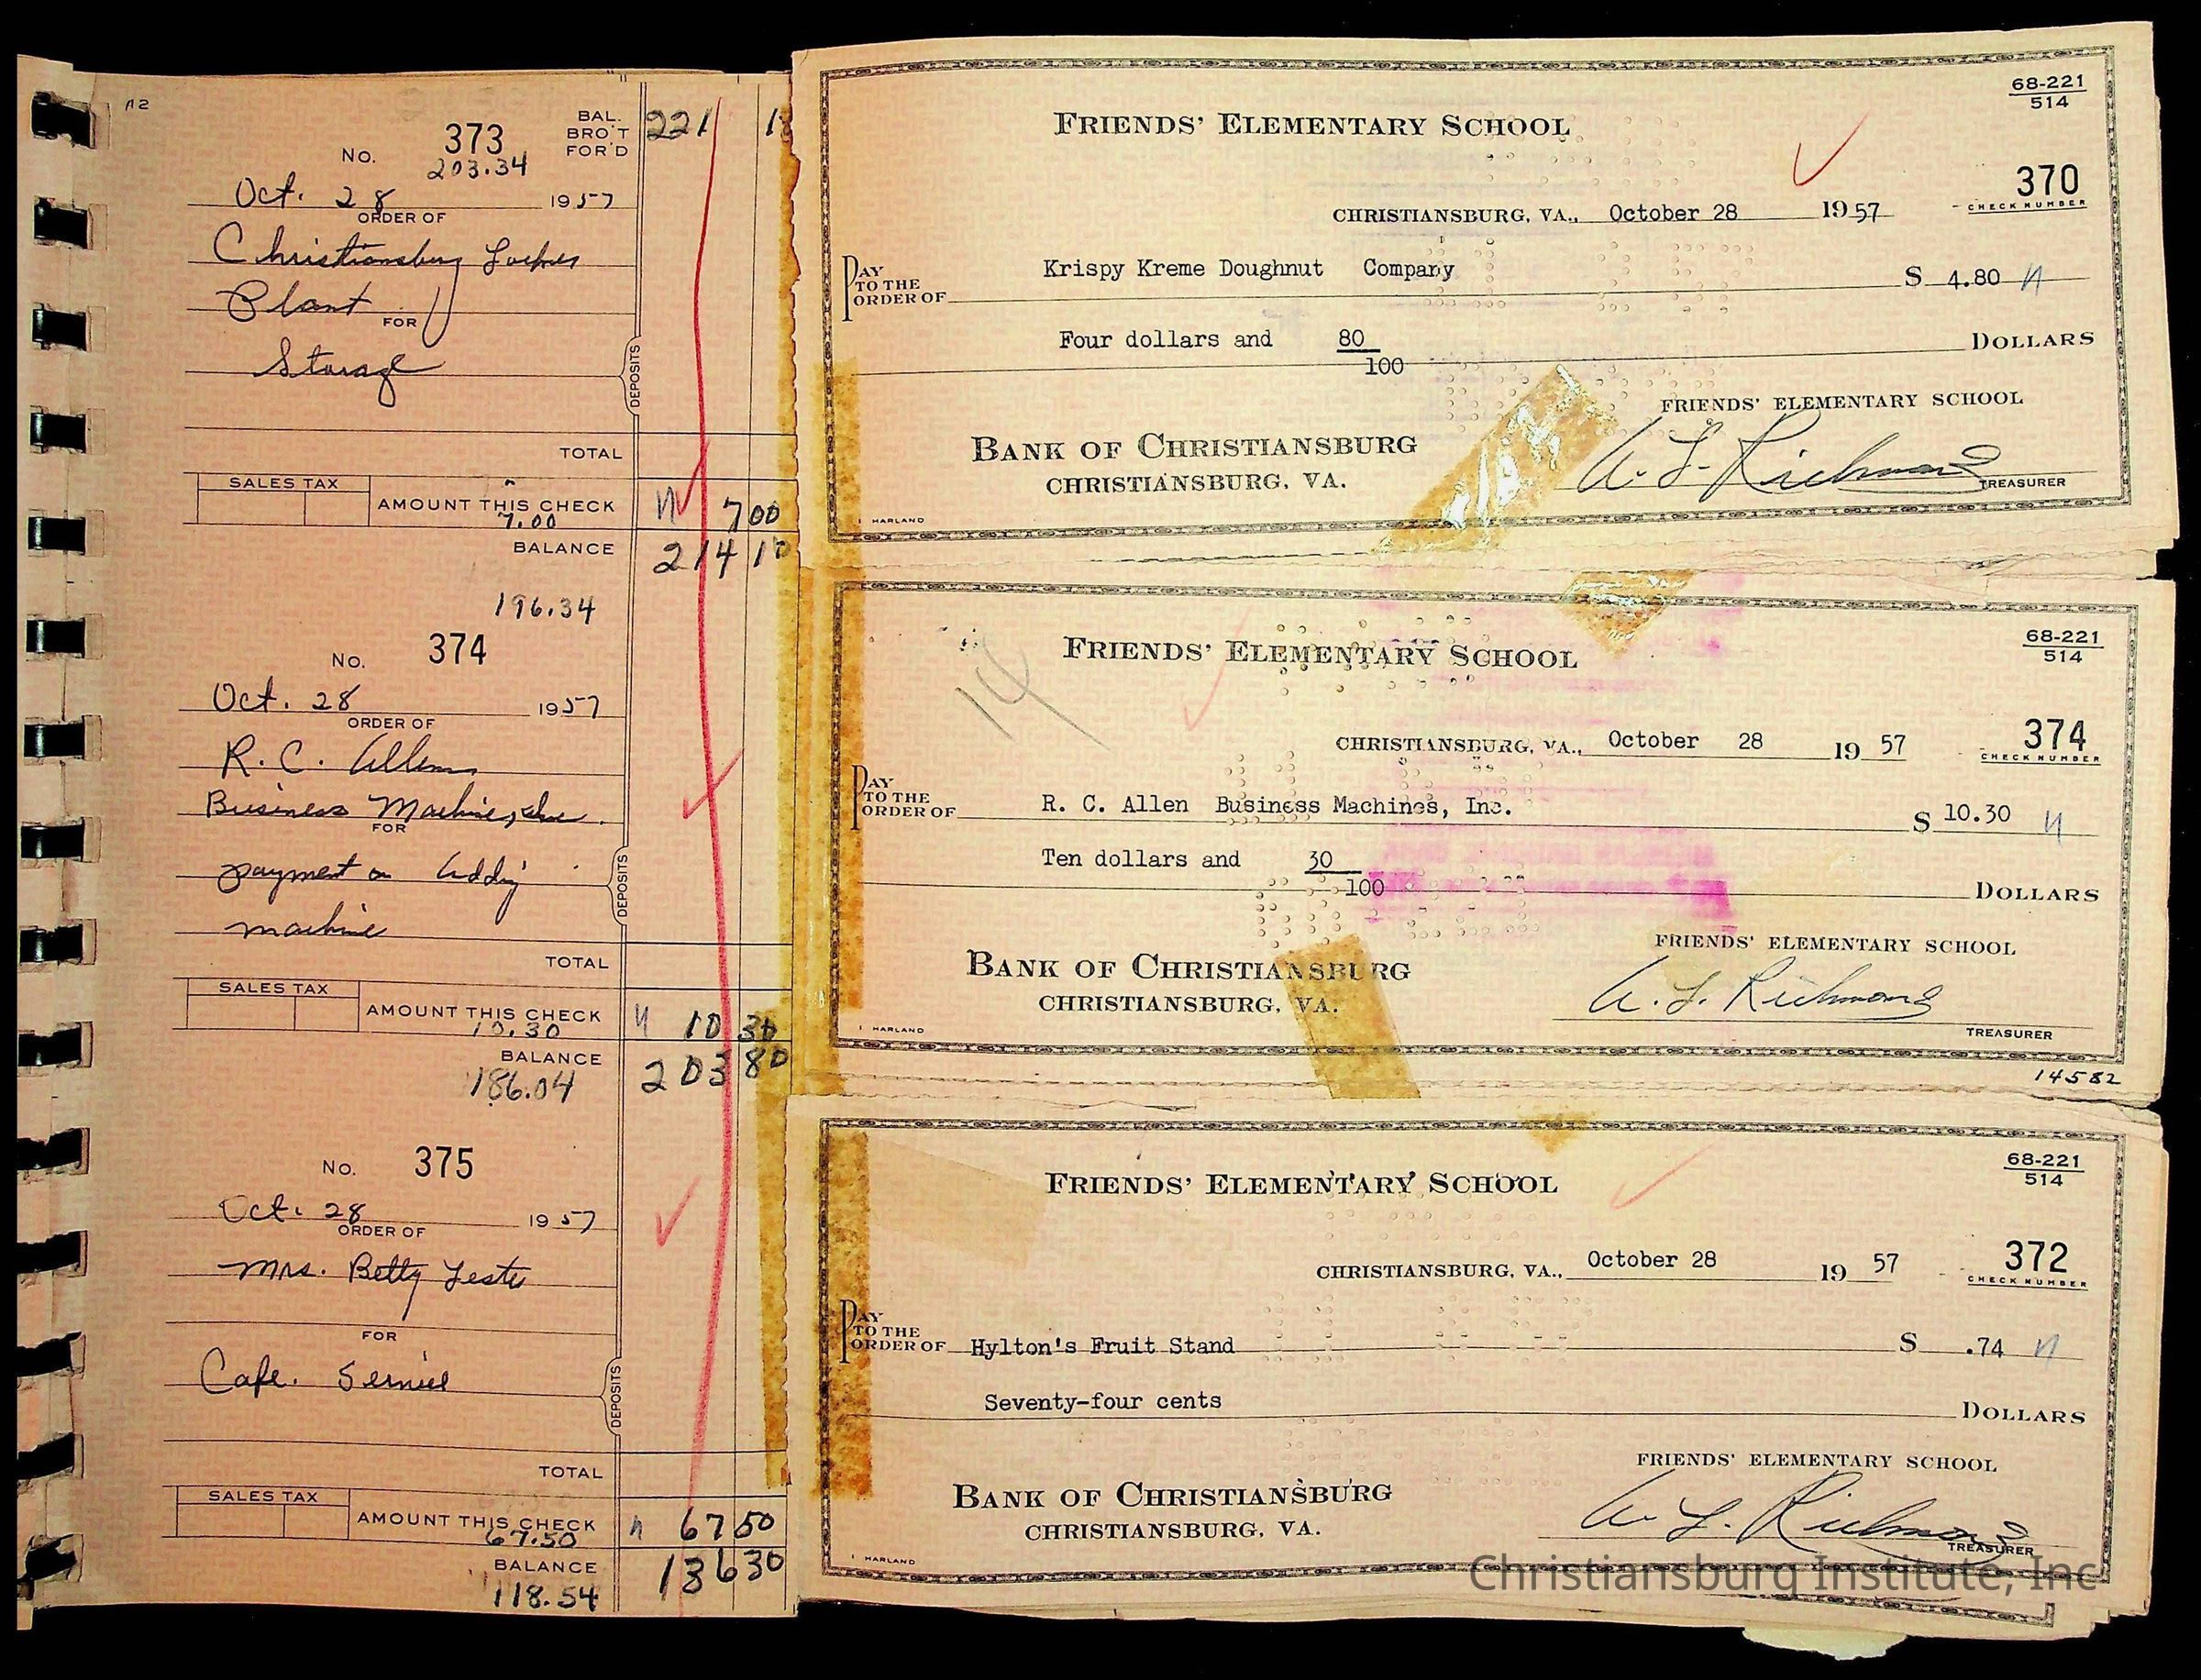 12
No. 373
BAL. BRO'T FOR'D 221 1
203.34
Oct. 28 1957
ORDER OF
Christiansburg Locker
Plant
FOR
Storage
DEPOSITS
TOTAL
SALES TAX
AMOUNT THIS CHECK 7 00
7.00
BALANCE 214 10
196.34
No. 374
Oct. 28 1957
ORDER OF
R. C. Allen
Business Machine, Inc.
FOR
payment on Adding
machine
DEPOSITS
TOTAL
SALES TAX
AMOUNT THIS CHECK 10 30
10.30
BALANCE 203 80
186.04
No. 375
Oct. 28 1957
ORDER OF
Mrs. Betty Lester
FOR
Cafe. Service
DEPOSITS
TOTAL
SALES TAX
AMOUNT THIS CHECK 67 50
67.50
BALANCE 136 30
118.54
68-221
514
FRIENDS' ELEMENTARY SCHOOL
370
CHECK NUMBER
CHRISTIANSBURG, VA., October 28 1957
PAY TO THE ORDER OF Krispy Kreme Doughnut Company $ 4.80
Four dollars and 80/100 DOLLARS
FRIENDS' ELEMENTARY SCHOOL
BANK OF CHRISTIANSBURG
CHRISTIANSBURG, VA.
A. L. Richmond
TREASURER
HARLAND
68-221
514
14
FRIENDS' ELEMENTARY SCHOOL
374
CHECK NUMBER
CHRISTIANSBURG, VA., October 28 1957
PAY TO THE ORDER OF R. C. Allen Business Machines, Inc. $ 10.30
Ten dollars and 30/100 DOLLARS
FRIENDS' ELEMENTARY SCHOOL
BANK OF CHRISTIANSBURG
CHRISTIANSBURG, VA.
A. L. Richmond
TREASURER
HARLAND
14582
68-221
514
FRIENDS' ELEMENTARY SCHOOL
372
CHECK NUMBER
CHRISTIANSBURG, VA., October 28 1957
PAY TO THE ORDER OF Hylton's Fruit Stand $ .74
Seventy-four cents DOLLARS
FRIENDS' ELEMENTARY SCHOOL
BANK OF CHRISTIANSBURG
CHRISTIANSBURG, VA.
A. L. Richmond
TREASURER
HARLAND
Christiansburg Institute, Inc